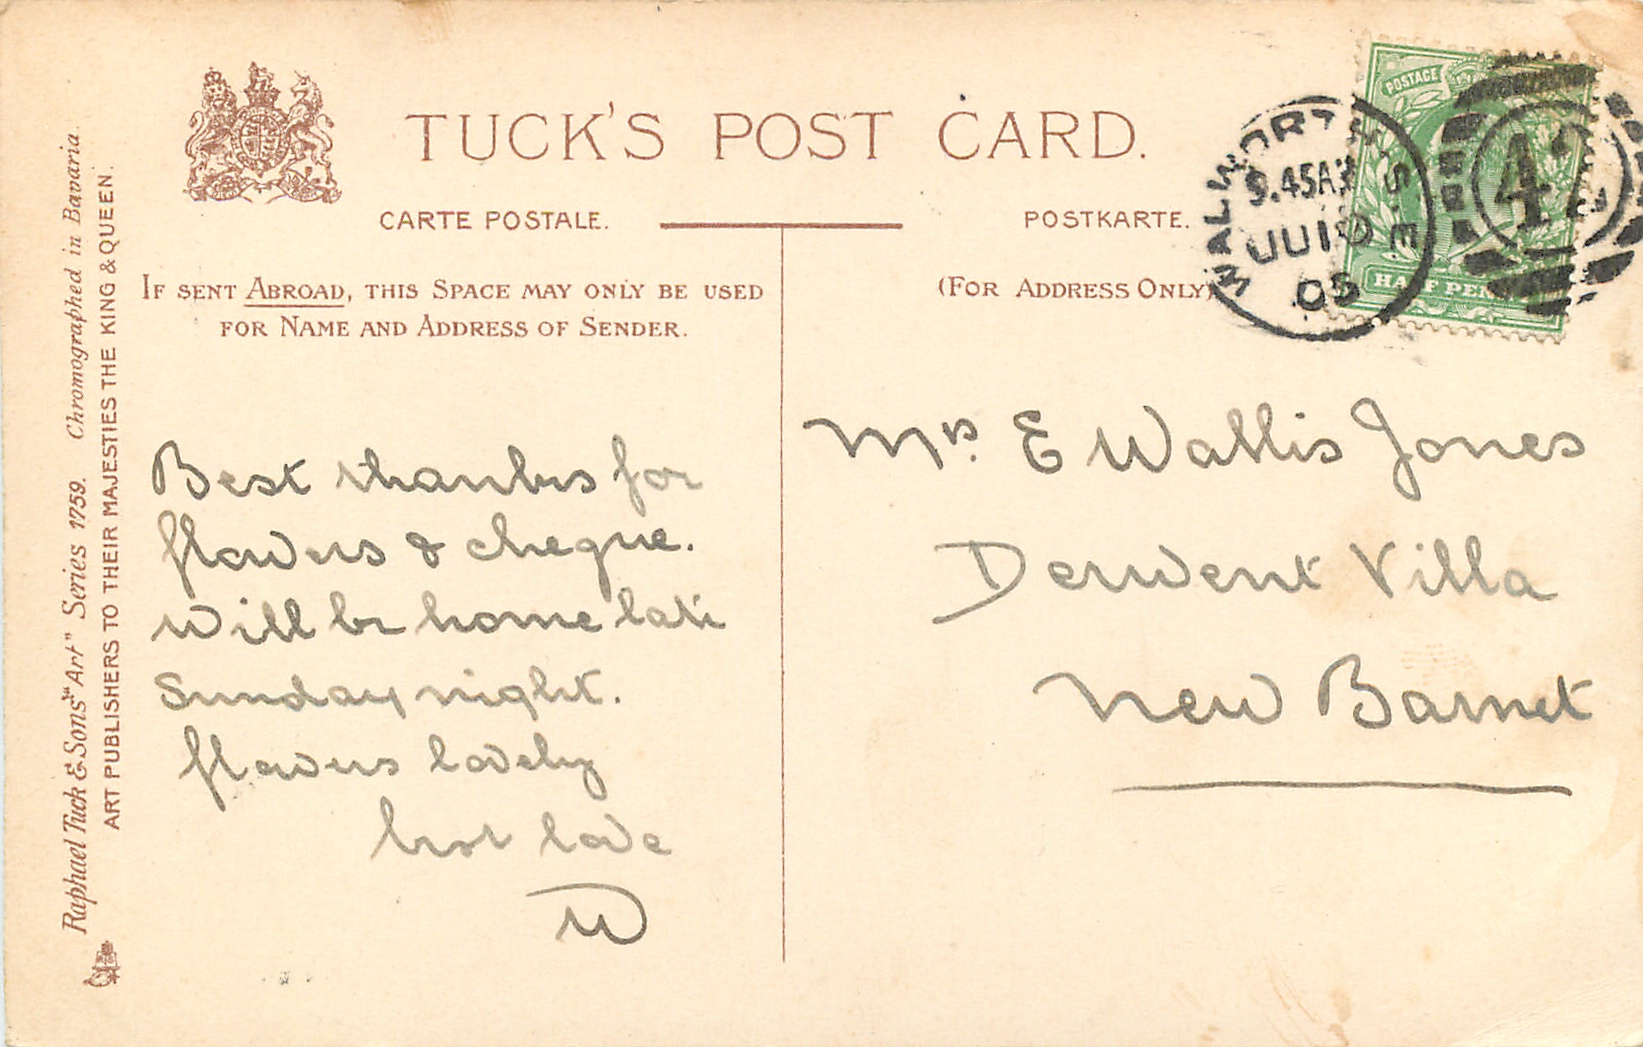 TUCK'S POST CARD.
CARTE POSTALE.
POSTKARTE.
IF SENT ABROAD, THIS SPACE MAY ONLY BE USED
FOR NAME AND ADDRESS OF SENDER.
(FOR ADDRESS ONLY)
WALWORTH S.E
9.45AM
JU 19
05
42
POSTAGE
HALF PEN
Best thanks for
flowers & cheque.
Will be home late
Sunday night.
flowers lovely
best love
W
Mrs. E Wallis Jones
Derwent Villa
New Barnet
Raphael Tuck & Sons' "Art" Series 1759. Chromographed in Bavaria.
ART PUBLISHERS TO THEIR MAJESTIES THE KING & QUEEN.